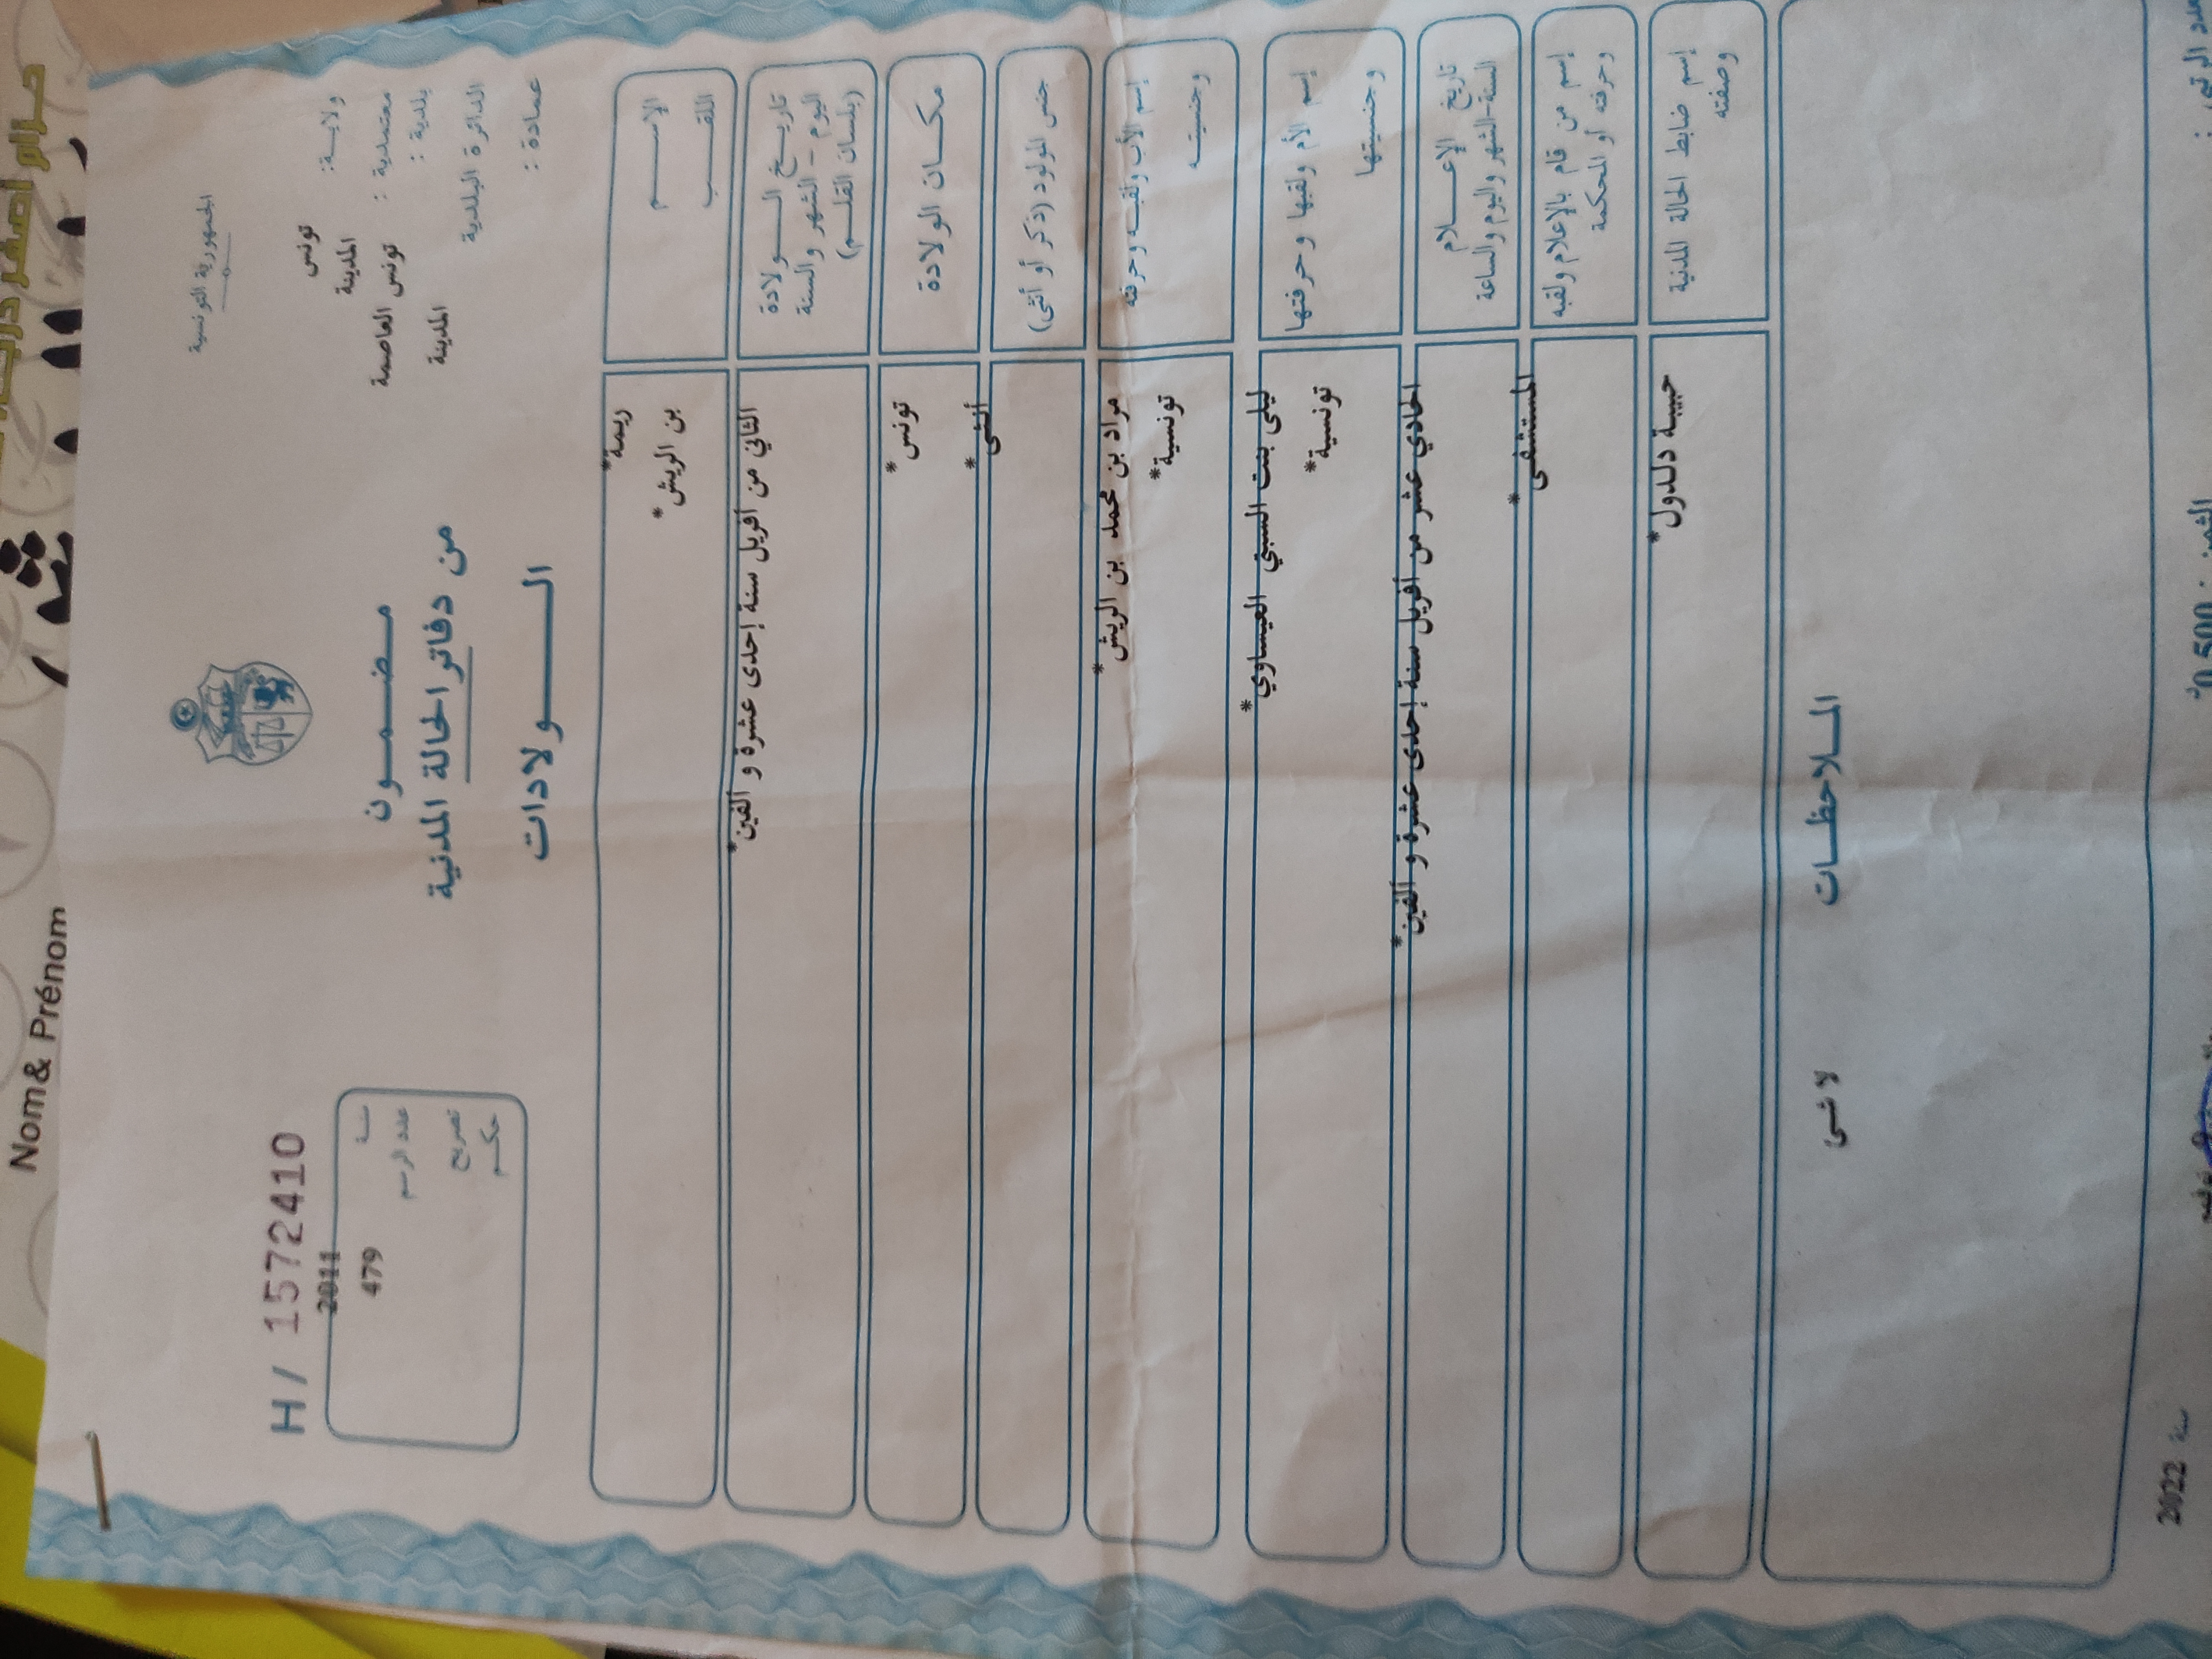 الجمهورية التونسية
ولاية: تونس
المدينة
معتمدية : تونس العاصمة
بلدية :
الدائرة البلدية المدينة
عمادة :
مضمون
من دفاتر الحالة المدنية
الولادات
H / 1572410
2011
سنة
479
عدد الرسم
تصريح
حكم
الإسم
ريمة*
اللقب
بن الريش*
تاريخ الولادة
اليوم - الشهر والسنة
(بلسان القلم)
الثاني من أفريل سنة إحدى عشرة و ألفين*
مكان الولادة
تونس*
جنس المولود (ذكر أو أنثى)
أنثى*
إسم الأب ولقبه وحرفته
مراد بن محمد بن الريش*
وجنسيته
تونسية*
إسم الأم ولقبها وحرفتها
ليلى بنت السبتي العيساوي*
وجنسيتها
تونسية*
تاريخ الإعلام
السنة-الشهر واليوم والساعة
الحادي عشر من أفريل سنة إحدى عشرة و ألفين*
إسم من قام بالإعلام ولقبه
وحرفته أو المحكمة
المستشفى*
إسم ضابط الحالة المدنية
وصفته
حبيبة دلدول*
الملاحظات
لا شئ
الثمن
سنة 2022
Nom& Prénom